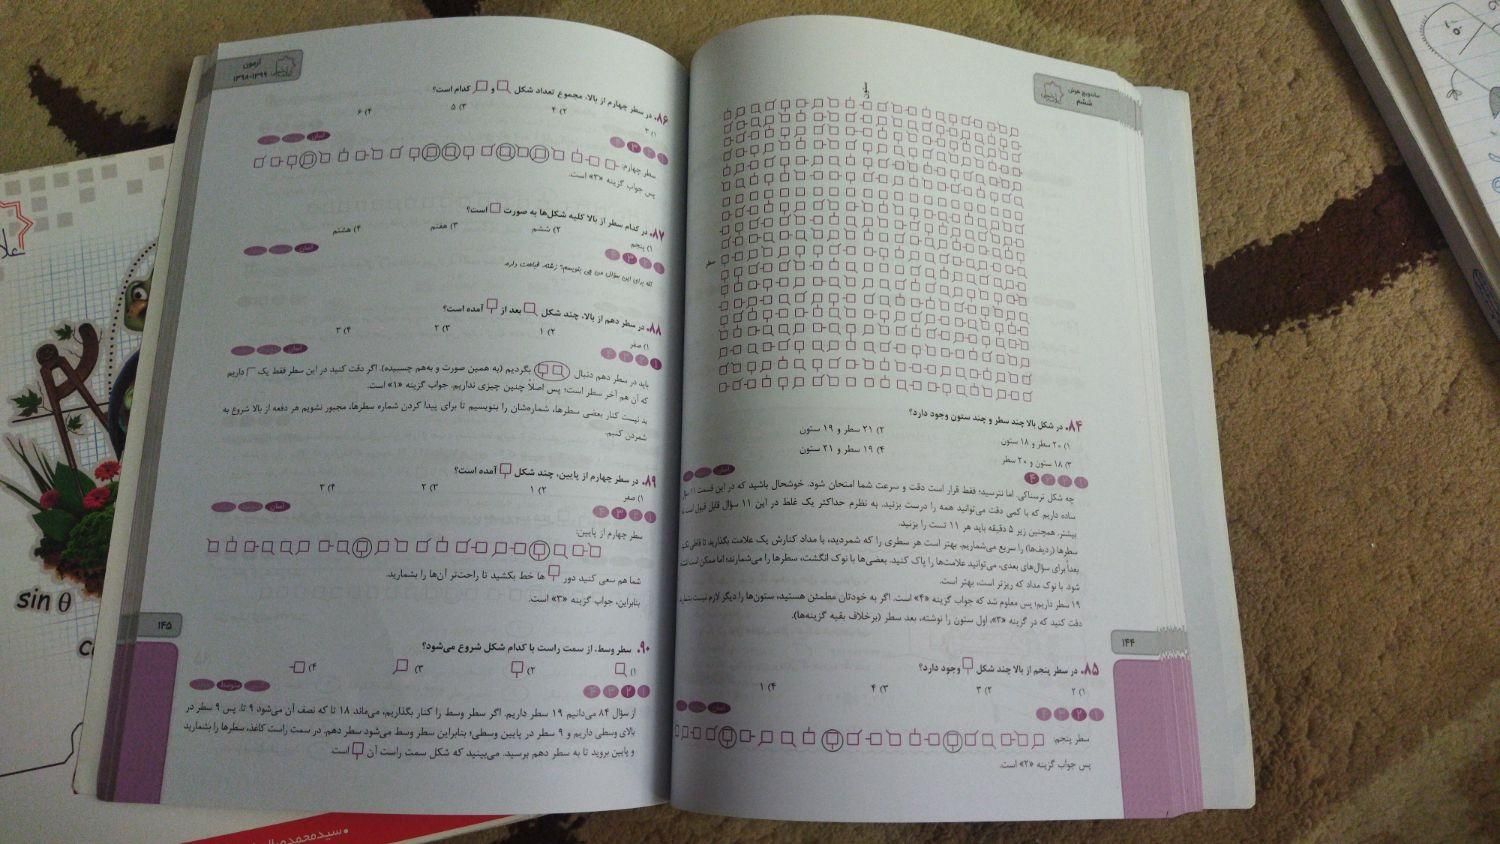 ساندویچ هوش
ششم
ستون
سطر
۸۴. در شکل بالا چند سطر و چند ستون وجود دارد؟
۱) ۲۰ سطر و ۱۸ ستون
۲) ۲۱ سطر و ۱۹ ستون
۳) ۱۸ ستون و ۲۰ سطر
۴) ۱۹ سطر و ۲۱ ستون
آسان
چه شکل ترسناکی. اما نترسید؛ فقط قرار است دقت و سرعت شما امتحان شود. خوشحال باشید که در این قسمت ۱۱ سؤال
ساده داریم که با کمی دقت می‌توانید همه را درست بزنید. به نظرم حداکثر یک غلط در این ۱۱ سؤال قابل قبول است
بیشتر. همچنین زیر ۵ دقیقه باید هر ۱۱ تست را بزنید.
سطرها (ردیف‌ها) را سریع می‌شماریم. بهتر است هر سطری را که شمردید، با مداد کنارش یک علامت بگذارید تا قاطی
بعداً برای سؤال‌های بعدی، می‌توانید علامت‌ها را پاک کنید. بعضی‌ها با نوک انگشت، سطرها را می‌شمارند؛ اما ممکن است
شود. با نوک مداد که ریزتر است، بهتر است.
۱۹ سطر داریم؛ پس معلوم شد که جواب گزینه «۴» است. اگر به خودتان مطمئن هستید، ستون‌ها را دیگر لازم نیست
دقت کنید که در گزینه «۳»، اول ستون را نوشته، بعد سطر (برخلاف بقیه گزینه‌ها).
۱۴۴
۸۵. در سطر پنجم از بالا چند شکل وجود دارد؟
۱) ۲
۲) ۳
۳) ۴
۴) ۱
آسان
سطر پنجم:
پس جواب گزینه «۲» است.
آزمون
۱۳۹۸-۱۳۹۹
۸۶. در سطر چهارم از بالا، مجموع تعداد شکل و کدام است؟
۱) ۳
۲) ۴
۳) ۵
۴) ۶
آسان
سطر چهارم:
پس جواب گزینه «۳» است.
۸۷. در کدام سطر از بالا کلیه شکل‌ها به صورت است؟
۱) پنجم
۲) ششم
۳) هفتم
۴) هشتم
آسان
آخه برای این سؤال من چی بنویسم؟ زشته. قباحت داره.
۸۸. در سطر دهم از بالا، چند شکل بعد از آمده است؟
۱) صفر
۲) ۱
۳) ۲
۴) ۳
آسان
باید در سطر دهم دنبال بگردیم (به همین صورت و به‌هم چسبیده). اگر دقت کنید در این سطر فقط یک داریم
که آن هم آخر سطر است؛ پس اصلاً چنین چیزی نداریم. جواب گزینه «۱» است.
بد نیست کنار بعضی سطرها، شماره‌شان را بنویسیم تا برای پیدا کردن شماره سطرها، مجبور نشویم هر دفعه از بالا شروع به
شمردن کنیم.
۸۹. در سطر چهارم از پایین، چند شکل آمده است؟
۱) صفر
۲) ۱
۳) ۲
۴) ۳
آسان
سطر چهارم از پایین:
شما هم سعی کنید دور ها خط بکشید تا راحت‌تر آن‌ها را بشمارید.
بنابراین، جواب گزینه «۳» است.
۹۰. سطر وسط، از سمت راست با کدام شکل شروع می‌شود؟
۱)
۲)
۳)
۴)
متوسط
از سؤال ۸۴ می‌دانیم ۱۹ سطر داریم. اگر سطر وسط را کنار بگذاریم، می‌ماند ۱۸ تا که نصف آن می‌شود ۹ تا. پس ۹ سطر در
بالای وسطی داریم و ۹ سطر در پایین وسطی؛ بنابراین سطر وسط می‌شود سطر دهم. در سمت راست کاغذ، سطرها را بشمارید
و پایین بروید تا به سطر دهم برسید. می‌بینید که شکل سمت راست آن است
۱۴۵
sin θ